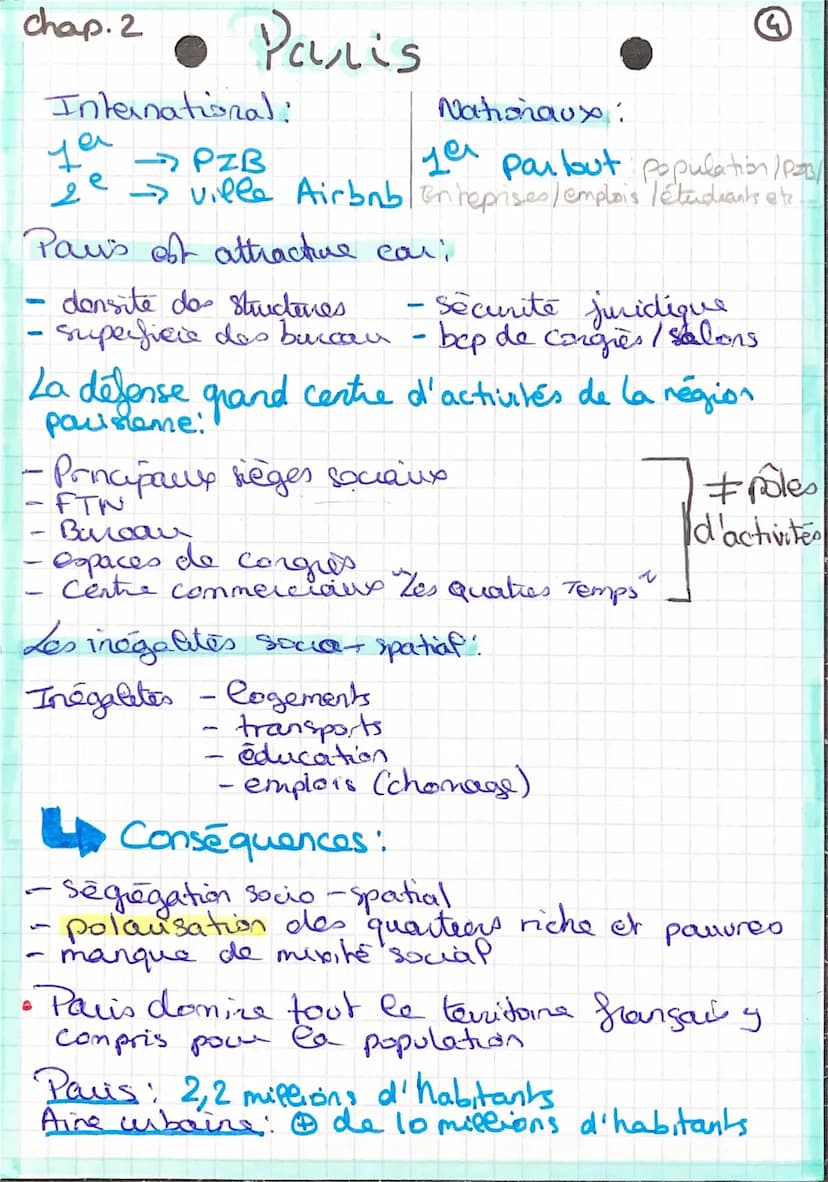 chap. 2
4
Paris
International:
1er → PIB
2e → ville Airbnb
Nationaux:
1er partout population/PIB/
Entreprises/emplois/étudiants etc
Paris est attractive car:
- densité des structures
- superficie des bureau
- sécurité juridique
- bcp de congrès / salons
La défense grand centre d'activités de la région
parisienne:
- Principaux sièges sociaux
- FTN
- Bureau
- espaces de congrès
- Centre commerciaux "Les quatres Temps"
≠ pôles
d'activités
Les inégalités socio-spatial:
Inégalités - logements
- transports
- éducation
- emplois (chomage)
Conséquences:
- ségrégation socio-spatial
- polarisation des quartiers riche et pauvres
- manque de mixité social
• Paris domine tout le territoire français y
compris pour la population
Paris: 2,2 millions d'habitants
Aire urbaine: ⊕ de 10 millions d'habitants